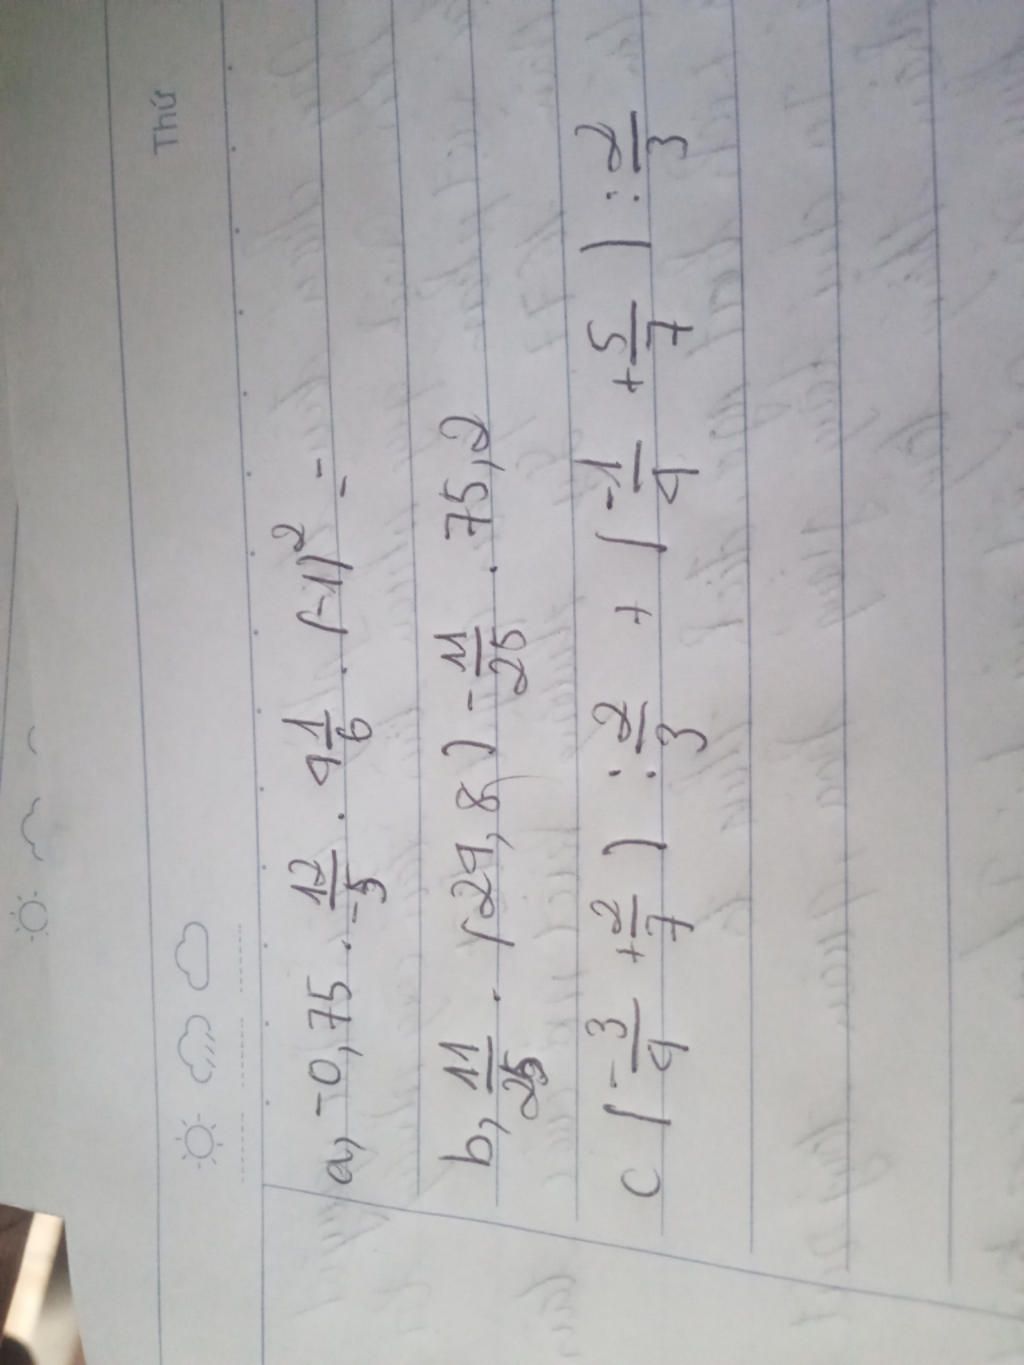 Thứ
a, -0,75 . 12/-5 . 4 1/6 . (-1)² =
b, 11/25 . (24,8) - 11/25 . 75,2
c (-3/4 + 2/7) : 2/3 + (-1/4 + 5/7) : 2/3